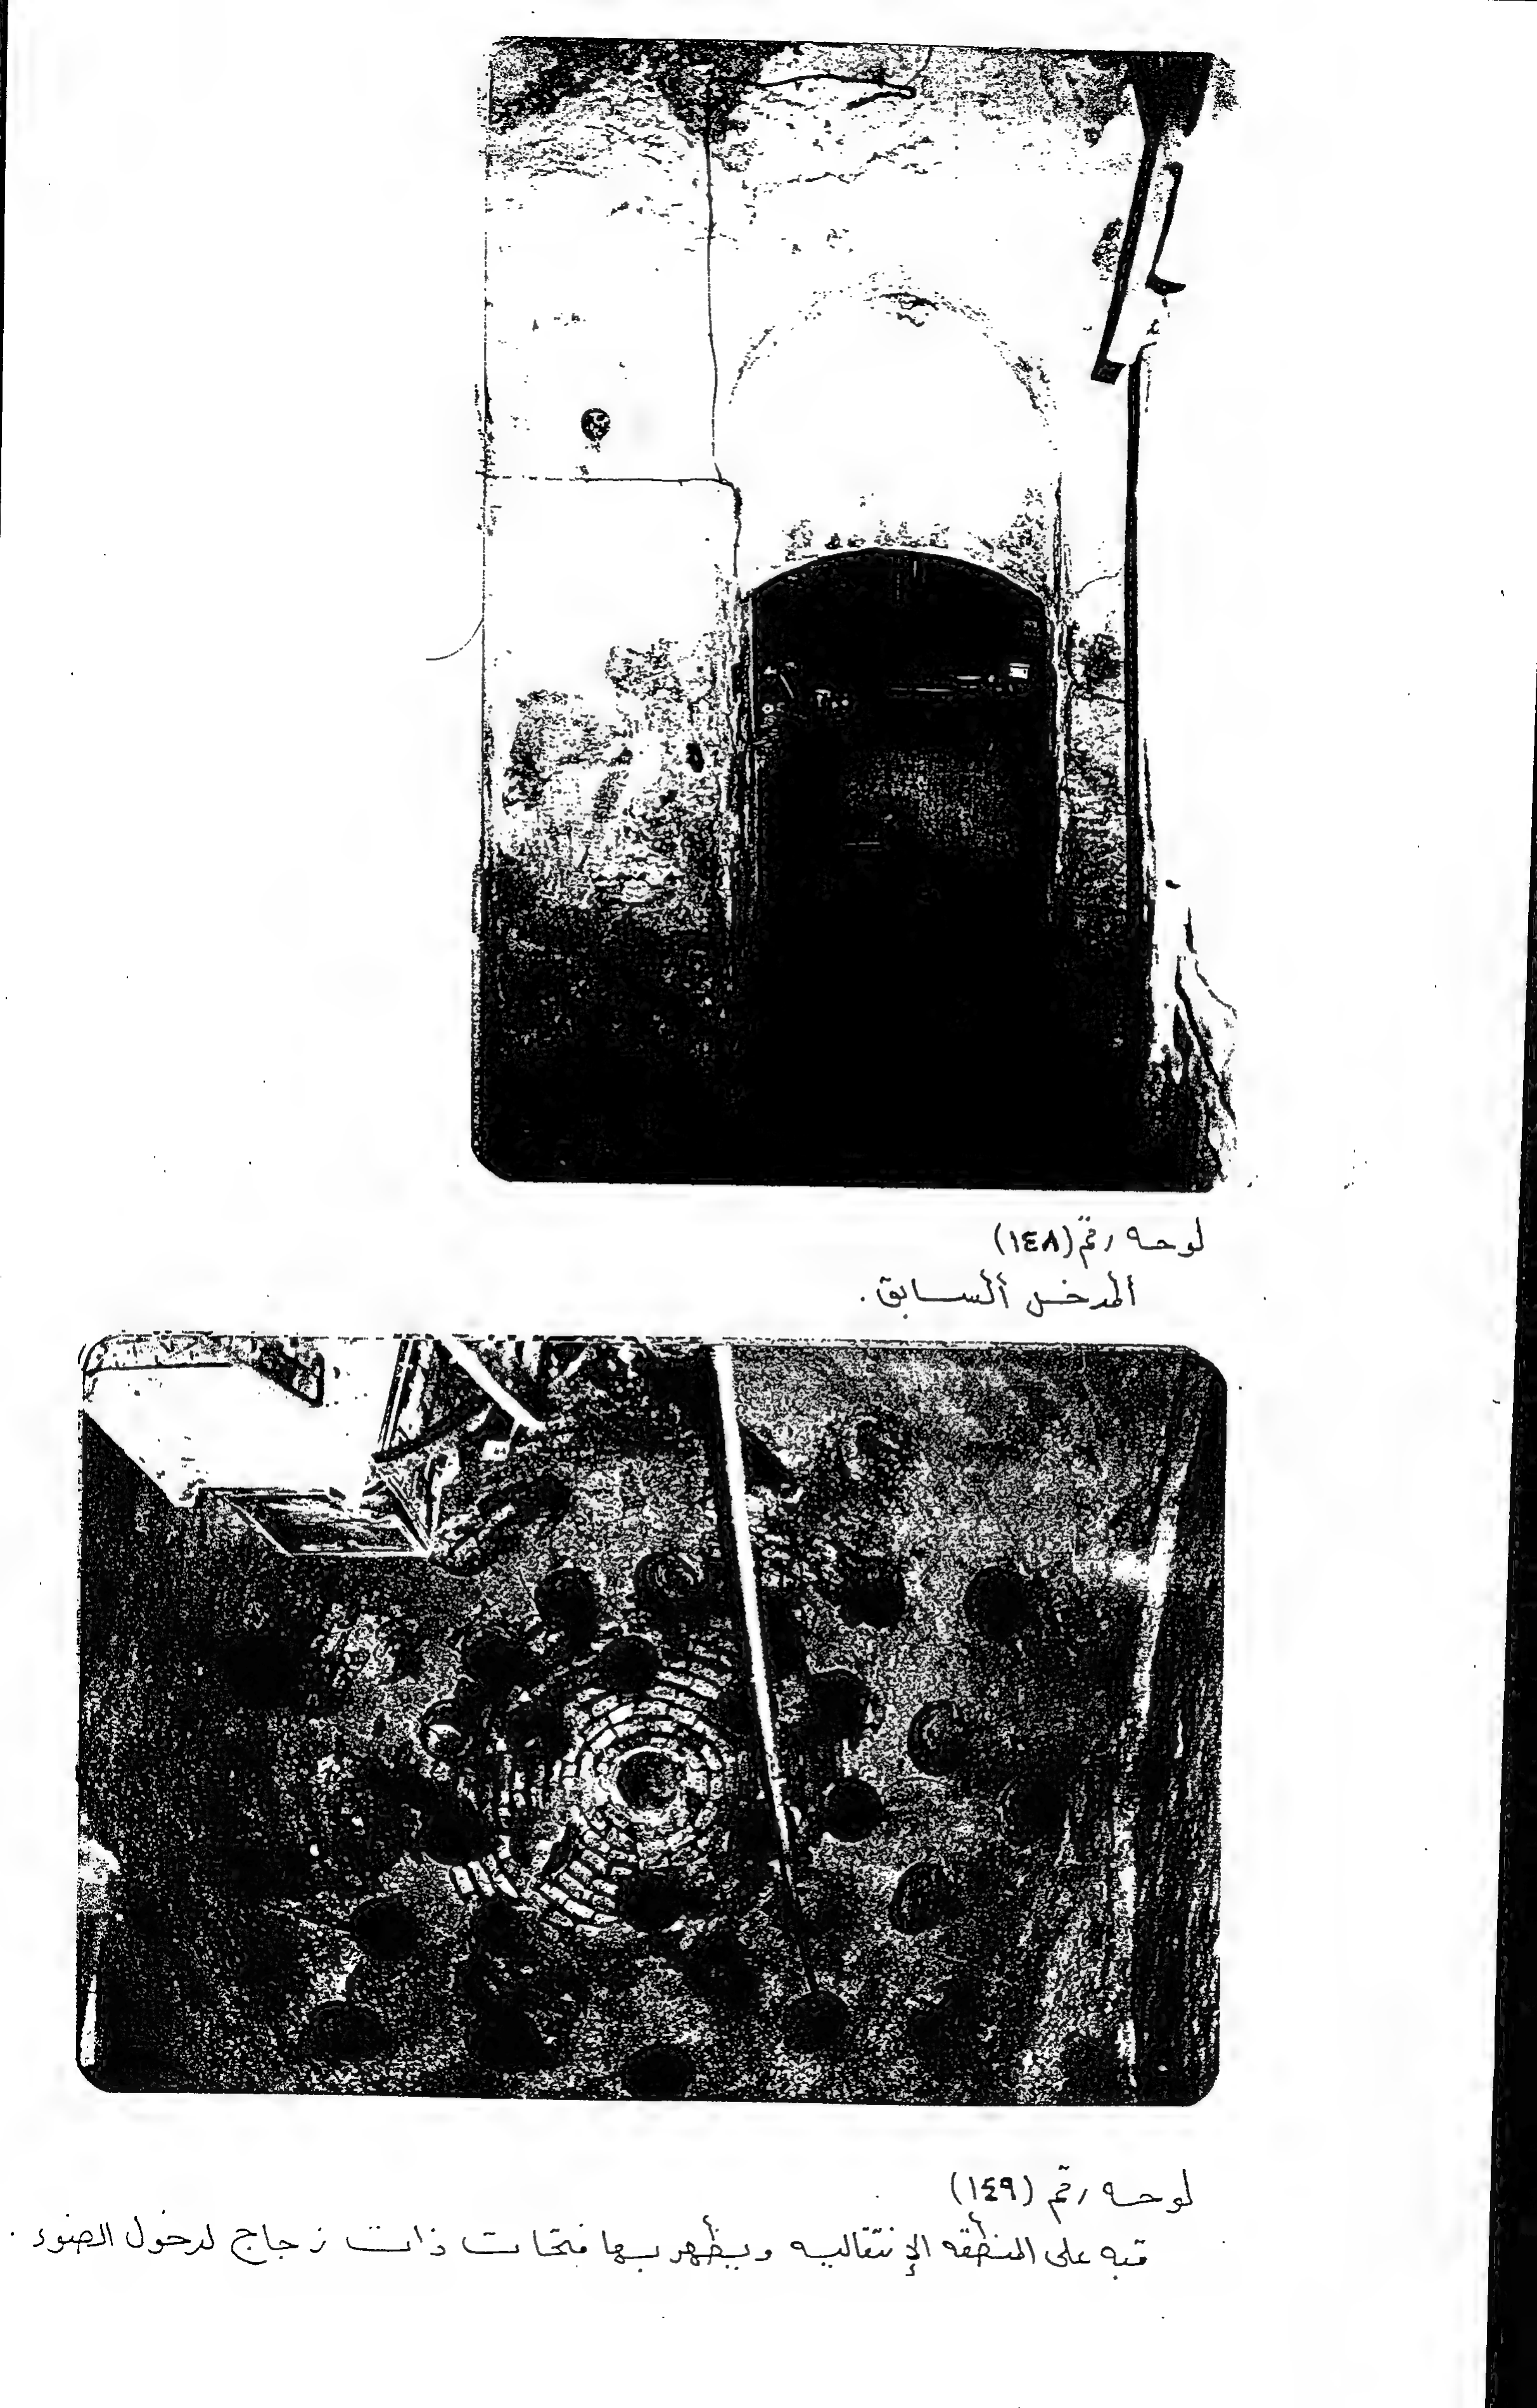 لوحه رقم (١٤٨)
المدخل السابق .
لوحه رقم (١٤٩)
قبه على المنطقه الإنتقاليه ويظهر بها فتحات ذات زجاج لدخول الضوء .